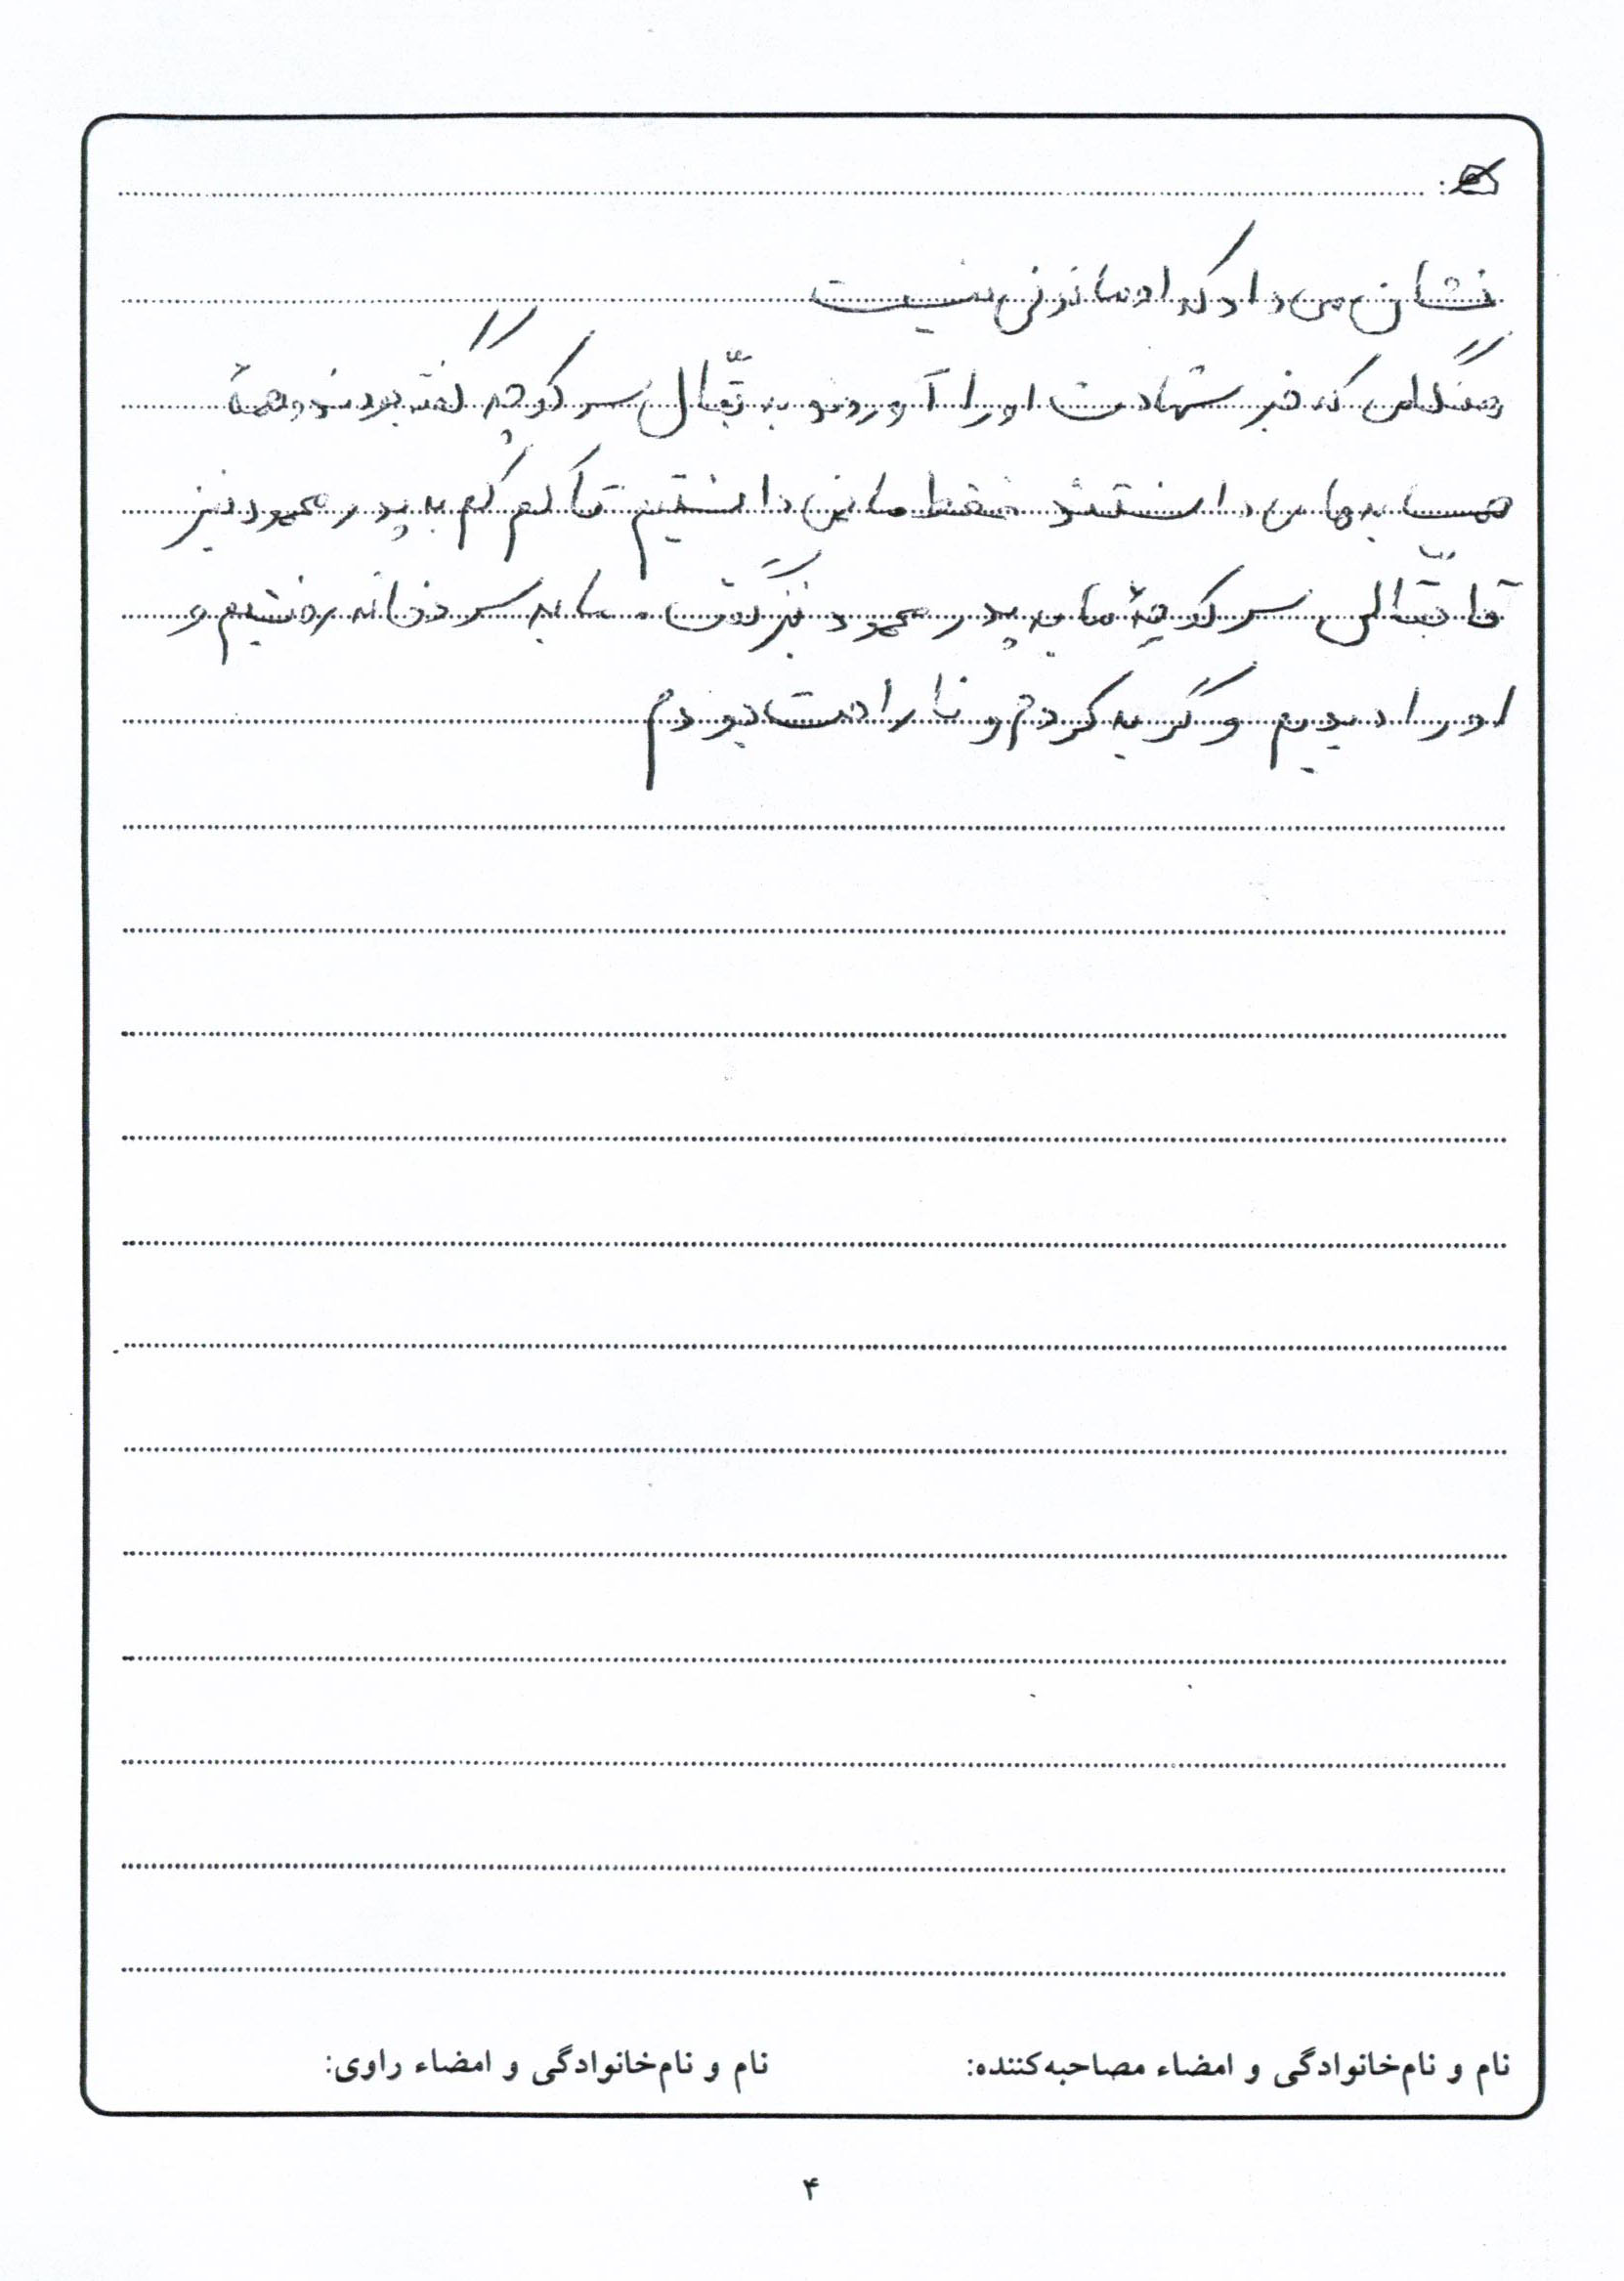 نشان می داد که او ماندنی نیست
هنگامی که خبر شهادت او را آوردند به بقّال سر کوچه گفته بودند و همهٔ
همسایه ها می دانستند فقط ما نمی دانستیم تا کم کم به پدر محمود نیز
آقا بقّالی سر کوچهٔ ما به پدر محمود نیز گفت . ما به سردخانه رفتیم و
او را دیدیم و گریه کردم و ناراحت بودم
نام و نام‌خانوادگی و امضاء مصاحبه‌کننده: نام و نام‌خانوادگی و امضاء راوی:
۴